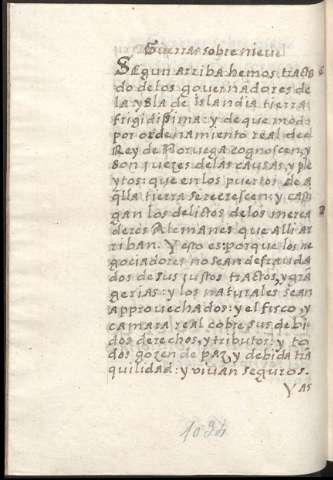 Guerras sobre nieve
SEgun arriba hemos tracta
do de los gouernadores de
la ysla de islandia tierra
frigidissima: y de que modo
por ordenamiento real del
Rey de Noruega cognoscen, y
son juezes delas causas, y ple
ytos: que en los puertos de a
q̃lla tierra se recrescen: y casti
gan los delictos delos merca
deros Alemanes que alli ar
riban. Y esto es: porque los ne
gociadores no sean defrauda
dos de sus justos tractos, y gra
gerias: y los naturales sean
approuechados: y el fisco, y
camara real cobre sus debi
dos derechos, y tributos: y to
dos gozen de paz, y debida tra
quilidad: y viuan seguros.
Y as
1034